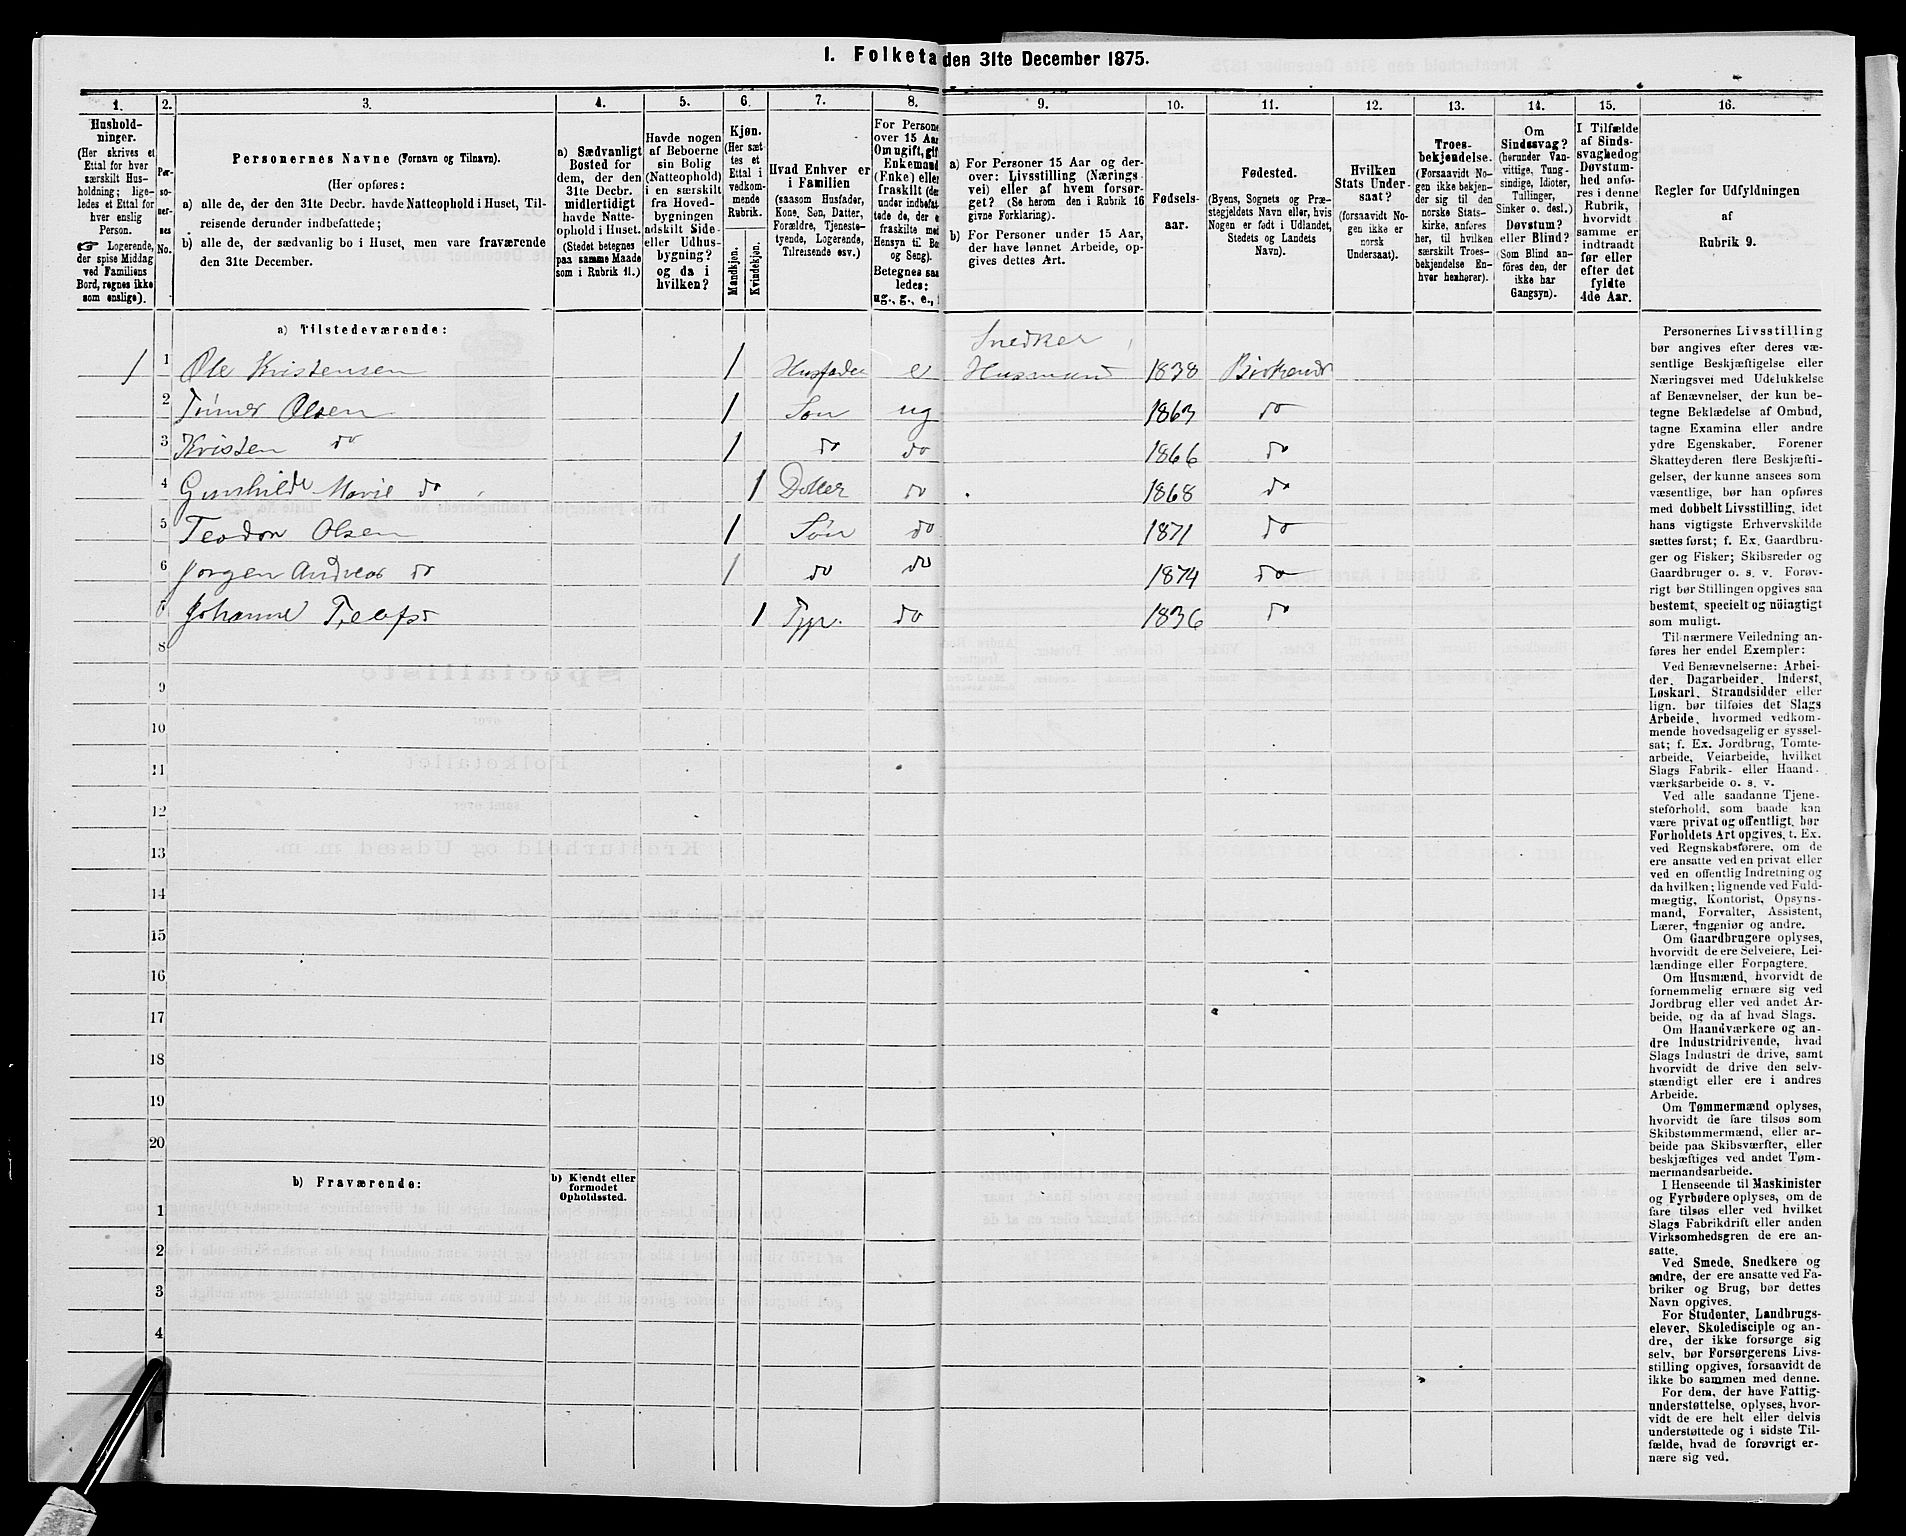 1. Folketa den 31te December 1875.
1. 2. 3. 4. 5. 6. 7. 8. 9. 10. 11. 12. 13. 14. 15. 16.
Hushold-
ninger.
(Her skrives et
Ettal for hver
særskilt Hus-
holdning; lige-
ledes et Ettal for
hver enslig
Person.
☞ Logerende,
der spise Middag
ved Familiens
Bord, regnes ikke
som enslige).
Per-
so-
ner-
nes
No.
Personernes Navne (Fornavn og Tilnavn).
(Her opføres:
a) alle de, der den 31te Decbr. havde Natteophold i Huset, Til-
reisende derunder indbefattede;
b) alle de, der sædvanlig bo i Huset, men vare fraværende
den 31te December.
a) Sædvanligt
Bosted for
dem, der den
31te Decbr.
midlertidigt
havde Natte-
ophold i Huset.
(Stedet betegnes
paa samme Maade
som i Rubrik 11.)
Havde nogen
af Beboerne
sin Bolig
(Natteophold)
i en særskilt
fra Hoved-
bygningen
adskilt Side-
eller Udhus-
bygning?
og da i
hvilken?
Kjøn.
(Her sæt-
tes et
Ettal i
vedkom-
mende
Rubrik.
Mandkjøn.
Kvindekjøn.
Hvad Enhver er
i Familien
(saasom Husfader,
Kone, Søn, Datter,
Forældre, Tjeneste-
tyende, Logerende,
Tilreisende osv.)
For Persone
over 15 Aar
Om ugift, gif
Enkemand
(Enke) eller
fraskilt (der
under indbefat
tede de, der e
fraskilte med
Hensyn til Bo
og Seng).
Betegnes saa
ledes:
ug., g., e.,
a) For Personer 15 Aar og der-
over: Livsstilling (Nærings-
vei) eller af hvem forsør-
get? (Se herom den i Rubrik 16
givne Forklaring).
b) For Personer under 15 Aar,
der have lønnet Arbeide, op-
gives dettes Art.
Fødsels-
aar.
Fødested.
(Byens, Sognets og Præ-
stegjeldets Navn eller, hvis
Nogen er født i Udlandet,
Stedets og Landets
Navn).
Hvilken
Stats Under-
saat?
(forsaavidt No-
gen ikke er
norsk
Undersaat).
Troes-
bekjendelse.
(Forsaavidt No-
gen ikke bekjen-
der sig til den
norske Stats-
kirke, anføres
her, til hvilken
særskilt Troes-
bekjendelse En-
hver henhører).
Om
Sindssvag?
(herunder Van-
vittige, Tung-
sindige, Idioter,
Tullinger,
Sinker o. desl.)
Døvstum?
eller Blind?
(Som Blind an-
føres den, der
ikke har
Gangsyn).
I Tilfælde
af Sinds-
svaghed og
Døvstum-
hed anfø-
res i denne
Rubrik,
hvorvidt
samme er
indtraadt
før eller
efter det
fyldte
4de Aar.
Regler for Udfyldningen
af
Rubrik 9.
a) Tilstedeværende:
Snedker
1 1 Ole Kristensen 1 Husfader e Husmand 1838 Birkenes
2 Tømer Olsen 1 Søn ug 1863 do
3 Kristen do 1 do do 1866 do
4 Gunhilde Marie do 1 Dotter do 1868 do
5 Teodor Olsen 1 Søn do 1871 do
6 Jørgen Andreas do 1 do do 1874 do
Johanne 1 do 1836 do
8
9
10
11
12
13
14
15
16
17
18
19
20
b) Fraværende:
b) Kjendt eller
formodet
Opholdssted.
1
2
3
4
Personernes Livsstilling
bør angives efter deres væ-
sentlige Beskjæftigelse eller
Næringsvei med Udelukkelse
af Benævnelser, der kun be-
tegne Beklædelse af Ombud,
tagne Examina eller andre
ydre Egenskaber. Forener
Skatteyderen flere Beskjæfti-
gelser, der kunne ansees som
væsentlige, bør han opføres
med dobbelt Livsstilling, idet
hans vigtigste Erhvervskilde
sættes først; f. Ex. Gaardbru-
ger og Fisker; Skibsreder og
Gaardbruger o. s. v. Forøv-
rigt bør Stillingen opgives saa
bestemt, specielt og nøiagtigt
som muligt.
Til nærmere Veiledning an-
føres her endel Exempler:
Ved Benævnelserne: Arbei-
der, Dagarbeider, Inderst,
Løskarl, Strandsidder eller
lign. bør tilføies det Slags
Arbeide, hvormed vedkom-
mende hovedsagelig er syssel-
sat; f. Ex. Jordbrug, Tomte-
arbeide, Veiarbeide, hvilket
Slags Fabrik- eller Haand-
værksarbeide o. s. v.
Ved alle saadanne Tjene-
steforhold, som baade kan
være privat og offentligt, bør
Forholdets Art opgives, t. Ex.
ved Regnskabsførere, om de
ere ansatte ved en privat eller
ved en offentlig Indretning og
da hvilken; lignende ved Fuld-
mægtig, Kontorist, Opsyns-
mand, Forvalter, Assistent,
Lærer, Ingeniør og andre.
Om Gaardbrugere oplyses,
hvorvidt de ere Selveiere, Lei-
lændinge eller Forpagtere.
Om Husmænd, hvorvidt de
fornemmelig ernære sig ved
Jordbrug eller ved andet Ar-
beide, og da af hvad Slags.
Om Haandværkere og an-
dre Industridrivende, hvad
Slags Industri de drive, samt
hvorvidt de drive den selv-
stændigt eller ere i andres
Arbeide.
Om Tømmermænd oplyses,
hvorvidt de fare tilsøs som
Skibstømmermænd, eller ar-
beide paa Skibsværfter, eller
beskjæftiges ved andet Tøm-
mermandsarbeide.
I Henseende til Maskinister
og Fyrbødere oplyses, om de
fare tilsøs eller ved hvilket
Slags Fabrikdrift eller anden
Virksomhedsgren de ere an-
satte.
Ved Smede, Snedkere og
andre, der ere ansatte ved Fa-
briker og Brug, bør dettes
Navn opgives.
For Studenter, Landbrugs-
elever, Skoledisciple og an-
dre, der ikke forsørge sig
selv, bør Forsørgerens Livs-
stilling opgives, forsaavidt de
ikke bo sammen med denne.
For dem, der have Fattig-
understøttelse, oplyses, hvor-
vidt de ere helt eller delvis
understøttede og i sidste Til-
fælde, hvad de forøvrigt er-
nære sig ved.